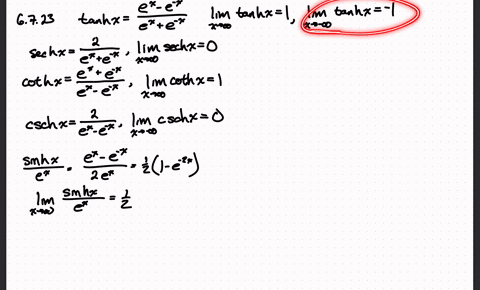 6.7.23 tanhx = (e^x - e^-x)/(e^x + e^-x) lim x→∞ tanhx = 1, lim x→-∞ tanhx = -1
sechx = 2/(e^x + e^-x), lim x→∞ sechx = 0
cothx = (e^x + e^-x)/(e^x - e^-x), lim x→∞ cothx = 1
cschx = 2/(e^x - e^-x), lim x→-∞ cschx = 0
sinhx/e^x = (e^x - e^-x)/(2e^x) = 1/2(1 - e^-2x)
lim x→∞ sinhx/e^x = 1/2